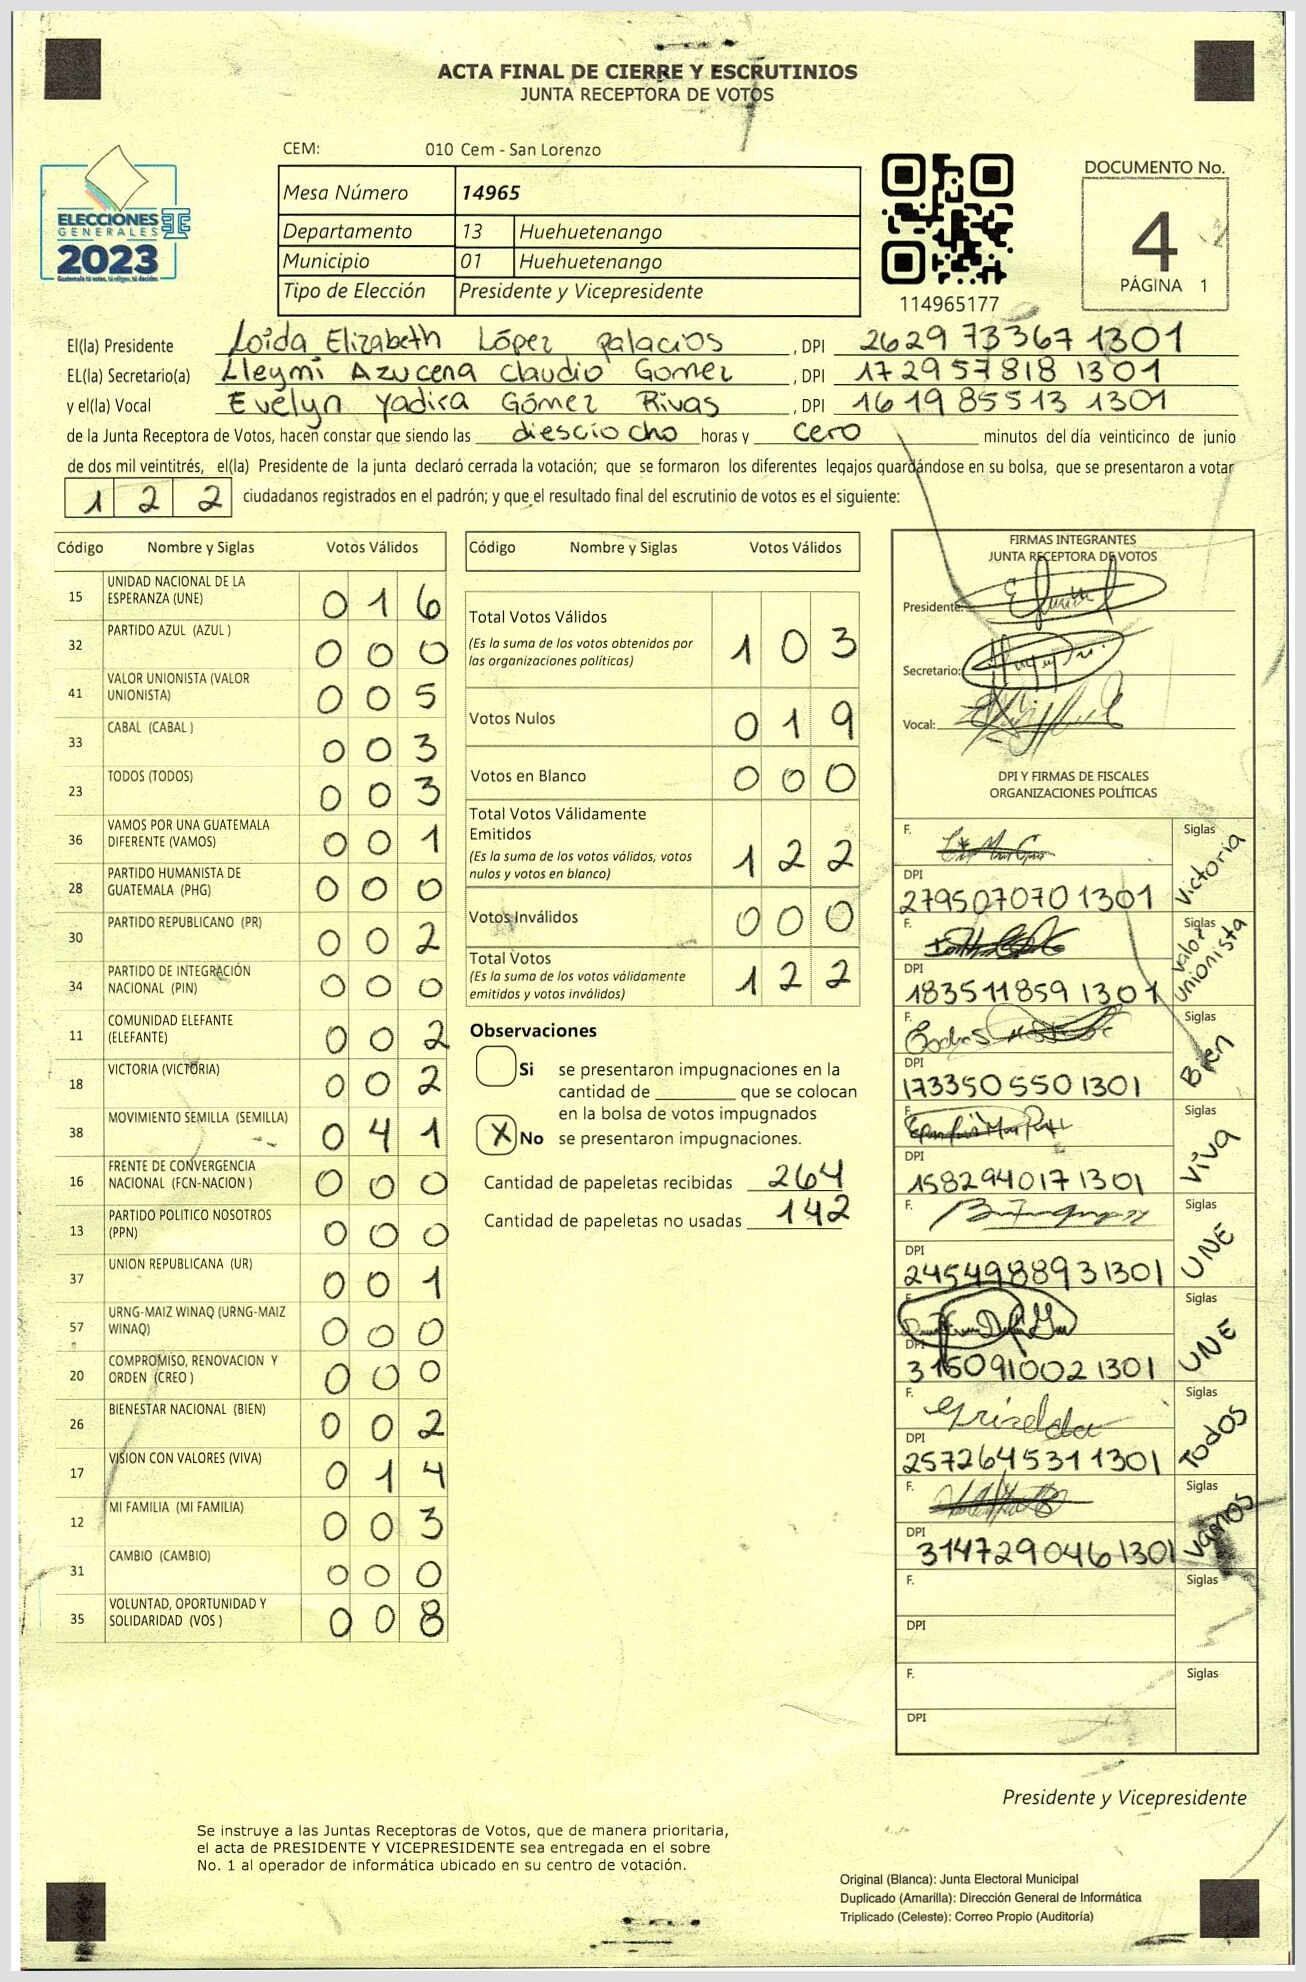 ACTA FINAL DE CIERRE Y ESCRUTINIOS
JUNTA RECEPTORA DE VOTOS
CEM: 010 Cem - San Lorenzo
ELECCIONES
GENERALES
2023
Guatemala tú votas, tú eliges, tú decides
Mesa Número 14965
Departamento 13 Huehuetenango
Municipio 01 Huehuetenango
Tipo de Elección Presidente y Vicepresidente
114965177
DOCUMENTO No.
4
PÁGINA 1
El(la) Presidente Loida Elizabeth López Palacios , DPI 2629 73367 1301
EL(la) Secretario(a) Lleymi Azucena Claudio Gomez , DPI 1729 57818 1301
y el(la) Vocal Evelyn Yadira Gómez Rivas , DPI 1619 85513 1301
de la Junta Receptora de Votos, hacen constar que siendo las diesciocho horas y cero minutos del día veinticinco de junio
de dos mil veintitrés, el(la) Presidente de la junta declaró cerrada la votación; que se formaron los diferentes legajos quardándose en su bolsa, que se presentaron a votar
1 2 2 ciudadanos registrados en el padrón; y que el resultado final del escrutinio de votos es el siguiente:
Código Nombre y Siglas Votos Válidos
15 UNIDAD NACIONAL DE LA ESPERANZA (UNE) 0 1 6
32 PARTIDO AZUL (AZUL ) 0 0 0
41 VALOR UNIONISTA (VALOR UNIONISTA) 0 0 5
33 CABAL (CABAL ) 0 0 3
23 TODOS (TODOS) 0 0 3
36 VAMOS POR UNA GUATEMALA DIFERENTE (VAMOS) 0 0 1
28 PARTIDO HUMANISTA DE GUATEMALA (PHG) 0 0 0
30 PARTIDO REPUBLICANO (PR) 0 0 2
34 PARTIDO DE INTEGRACIÓN NACIONAL (PIN) 0 0 0
11 COMUNIDAD ELEFANTE (ELEFANTE) 0 0 2
18 VICTORIA (VICTORIA) 0 0 2
38 MOVIMIENTO SEMILLA (SEMILLA) 0 4 1
16 FRENTE DE CONVERGENCIA NACIONAL (FCN-NACION ) 0 0 0
13 PARTIDO POLITICO NOSOTROS (PPN) 0 0 0
37 UNION REPUBLICANA (UR) 0 0 1
57 URNG-MAIZ WINAQ (URNG-MAIZ WINAQ) 0 0 0
20 COMPROMISO, RENOVACION Y ORDEN (CREO ) 0 0 0
26 BIENESTAR NACIONAL (BIEN) 0 0 2
17 VISION CON VALORES (VIVA) 0 1 4
12 MI FAMILIA (MI FAMILIA) 0 0 3
31 CAMBIO (CAMBIO) 0 0 0
35 VOLUNTAD, OPORTUNIDAD Y SOLIDARIDAD (VOS ) 0 0 8
Código Nombre y Siglas Votos Válidos
Total Votos Válidos 1 0 3
(Es la suma de los votos obtenidos por
las organizaciones políticas)
Votos Nulos 0 1 9
Votos en Blanco 0 0 0
Total Votos Válidamente
Emitidos 1 2 2
(Es la suma de los votos válidos, votos
nulos y votos en blanco)
Votos Inválidos 0 0 0
Total Votos 1 2 2
(Es la suma de los votos válidamente
emitidos y votos inválidos)
Observaciones
Si se presentaron impugnaciones en la
cantidad de ________ que se colocan
en la bolsa de votos impugnados
X No se presentaron impugnaciones.
Cantidad de papeletas recibidas 264
Cantidad de papeletas no usadas 142
FIRMAS INTEGRANTES
JUNTA RECEPTORA DE VOTOS
Presidente:
Secretario:
Vocal:
DPI Y FIRMAS DE FISCALES
ORGANIZACIONES POLÍTICAS
F. Siglas Victoria
DPI 2795070701301
F. Siglas Valor Unionista
DPI 1835118591301
F. Siglas Bien
DPI 1733505501301
F. Siglas Viva
DPI 1582940171301
F. Siglas UNE
DPI 2454988931301
F. Siglas UNE
DPI 3150910021301
F. Griselda Siglas Todos
DPI 2572645311301
F. Siglas Vamos
DPI 3147290461301
F. Siglas
DPI
F. Siglas
DPI
Presidente y Vicepresidente
Se instruye a las Juntas Receptoras de Votos, que de manera prioritaria,
el acta de PRESIDENTE Y VICEPRESIDENTE sea entregada en el sobre
No. 1 al operador de informática ubicado en su centro de votación.
Original (Blanca): Junta Electoral Municipal
Duplicado (Amarilla): Dirección General de Informática
Triplicado (Celeste): Correo Propio (Auditoría)